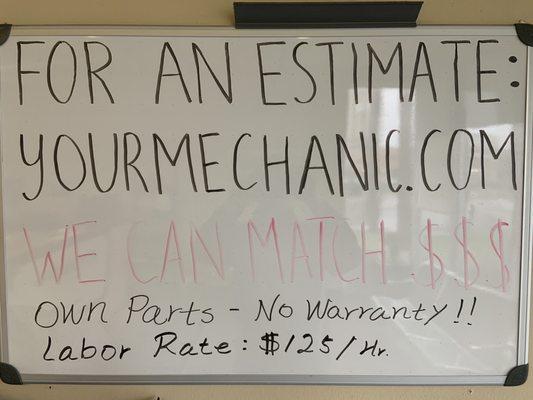 FOR AN ESTIMATE:
YOURMECHANIC.COM
WE CAN MATCH $$$
Own Parts - No Warranty!!
Labor Rate: $125/Hr.